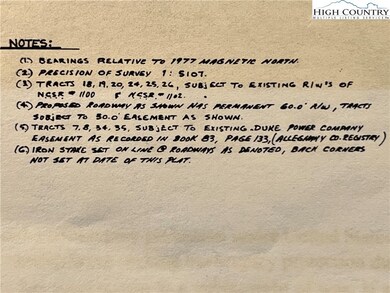 HIGH COUNTRY
MULTIPLE LISTING SERVICE
NOTES:
(1) BEARINGS RELATIVE TO 1977 MAGNETIC NORTH.
(2) PRECISION OF SURVEY 1: 5107.
(3) TRACTS 18, 19, 20, 24, 25, 26, SUBJECT TO EXISTING R/W'S OF
NCSR # 1100 & NCSR # 1102.
(4) PROPOSED ROADWAY AS SHOWN HAS PERMANENT 60.0' R/W, TRACTS
SUBJECT TO 30.0' EASEMENT AS SHOWN.
(5) TRACTS 7, 8, 34, 35, SUBJECT TO EXISTING DUKE POWER COMPANY
EASEMENT AS RECORDED IN BOOK 83, PAGE 133, (ALLEGHANY CO. REGISTRY)
(6) IRON STAKE SET ON LINE @ ROADWAYS AS DENOTED, BACK CORNERS
NOT SET AT DATE OF THIS PLAT.